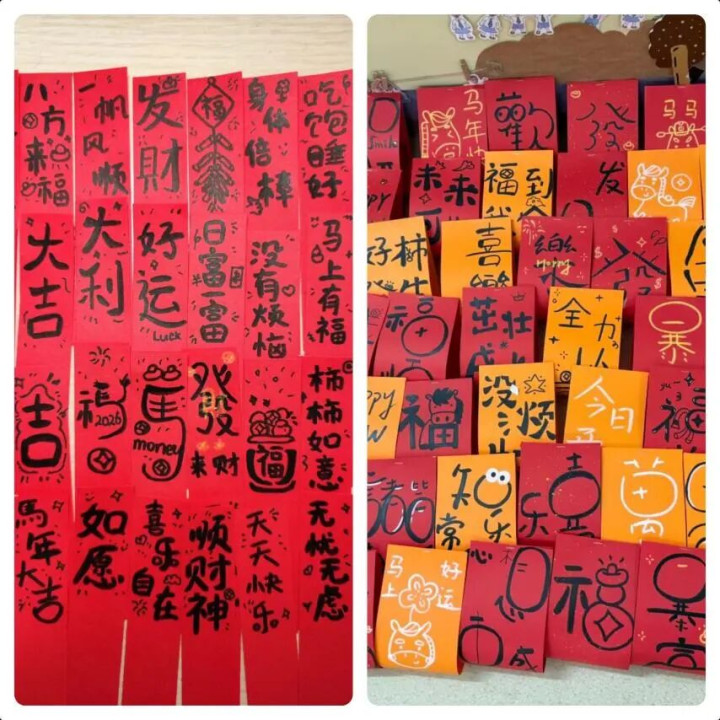 八方来福
一帆风顺
发财
福
身体倍棒
吃饱睡好
大吉
大利
好运
Luck
日富一富
没有烦恼
马上有福
吉
福
2026
馬
money
發
来财
福
柿柿如意
馬年大吉
如愿
喜乐自在
顺财神
天天快乐
无忧无虑
Smile
马年
歡
發
马马
未来
福到
发
好柿
喜
樂
Happy
發
福
茁壮
全力
暴
福
没烦
今日
福
知乐
常
喜
乐
萬
马上
好运
想
成
福
暴富